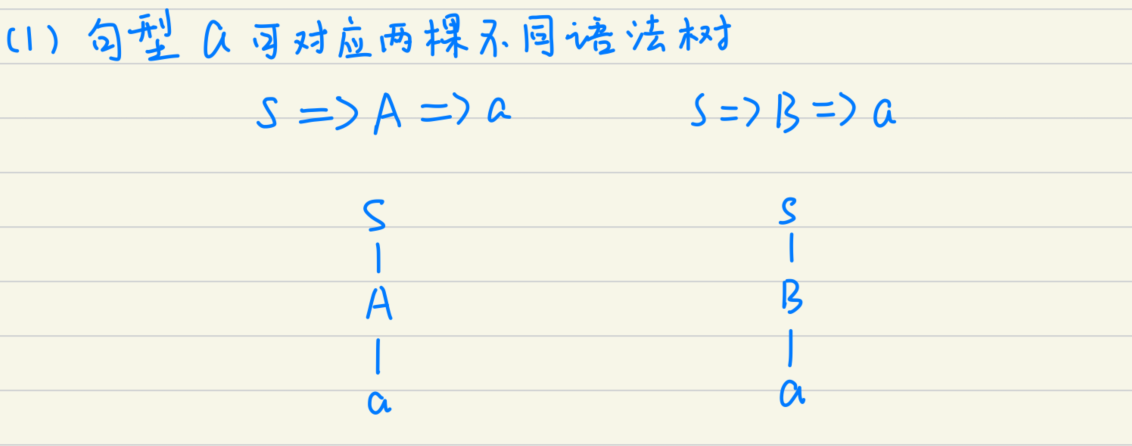 (1) 句型 a 可对应两棵不同语法树
S => A => a S => B => a
S S
| |
A B
| |
a a